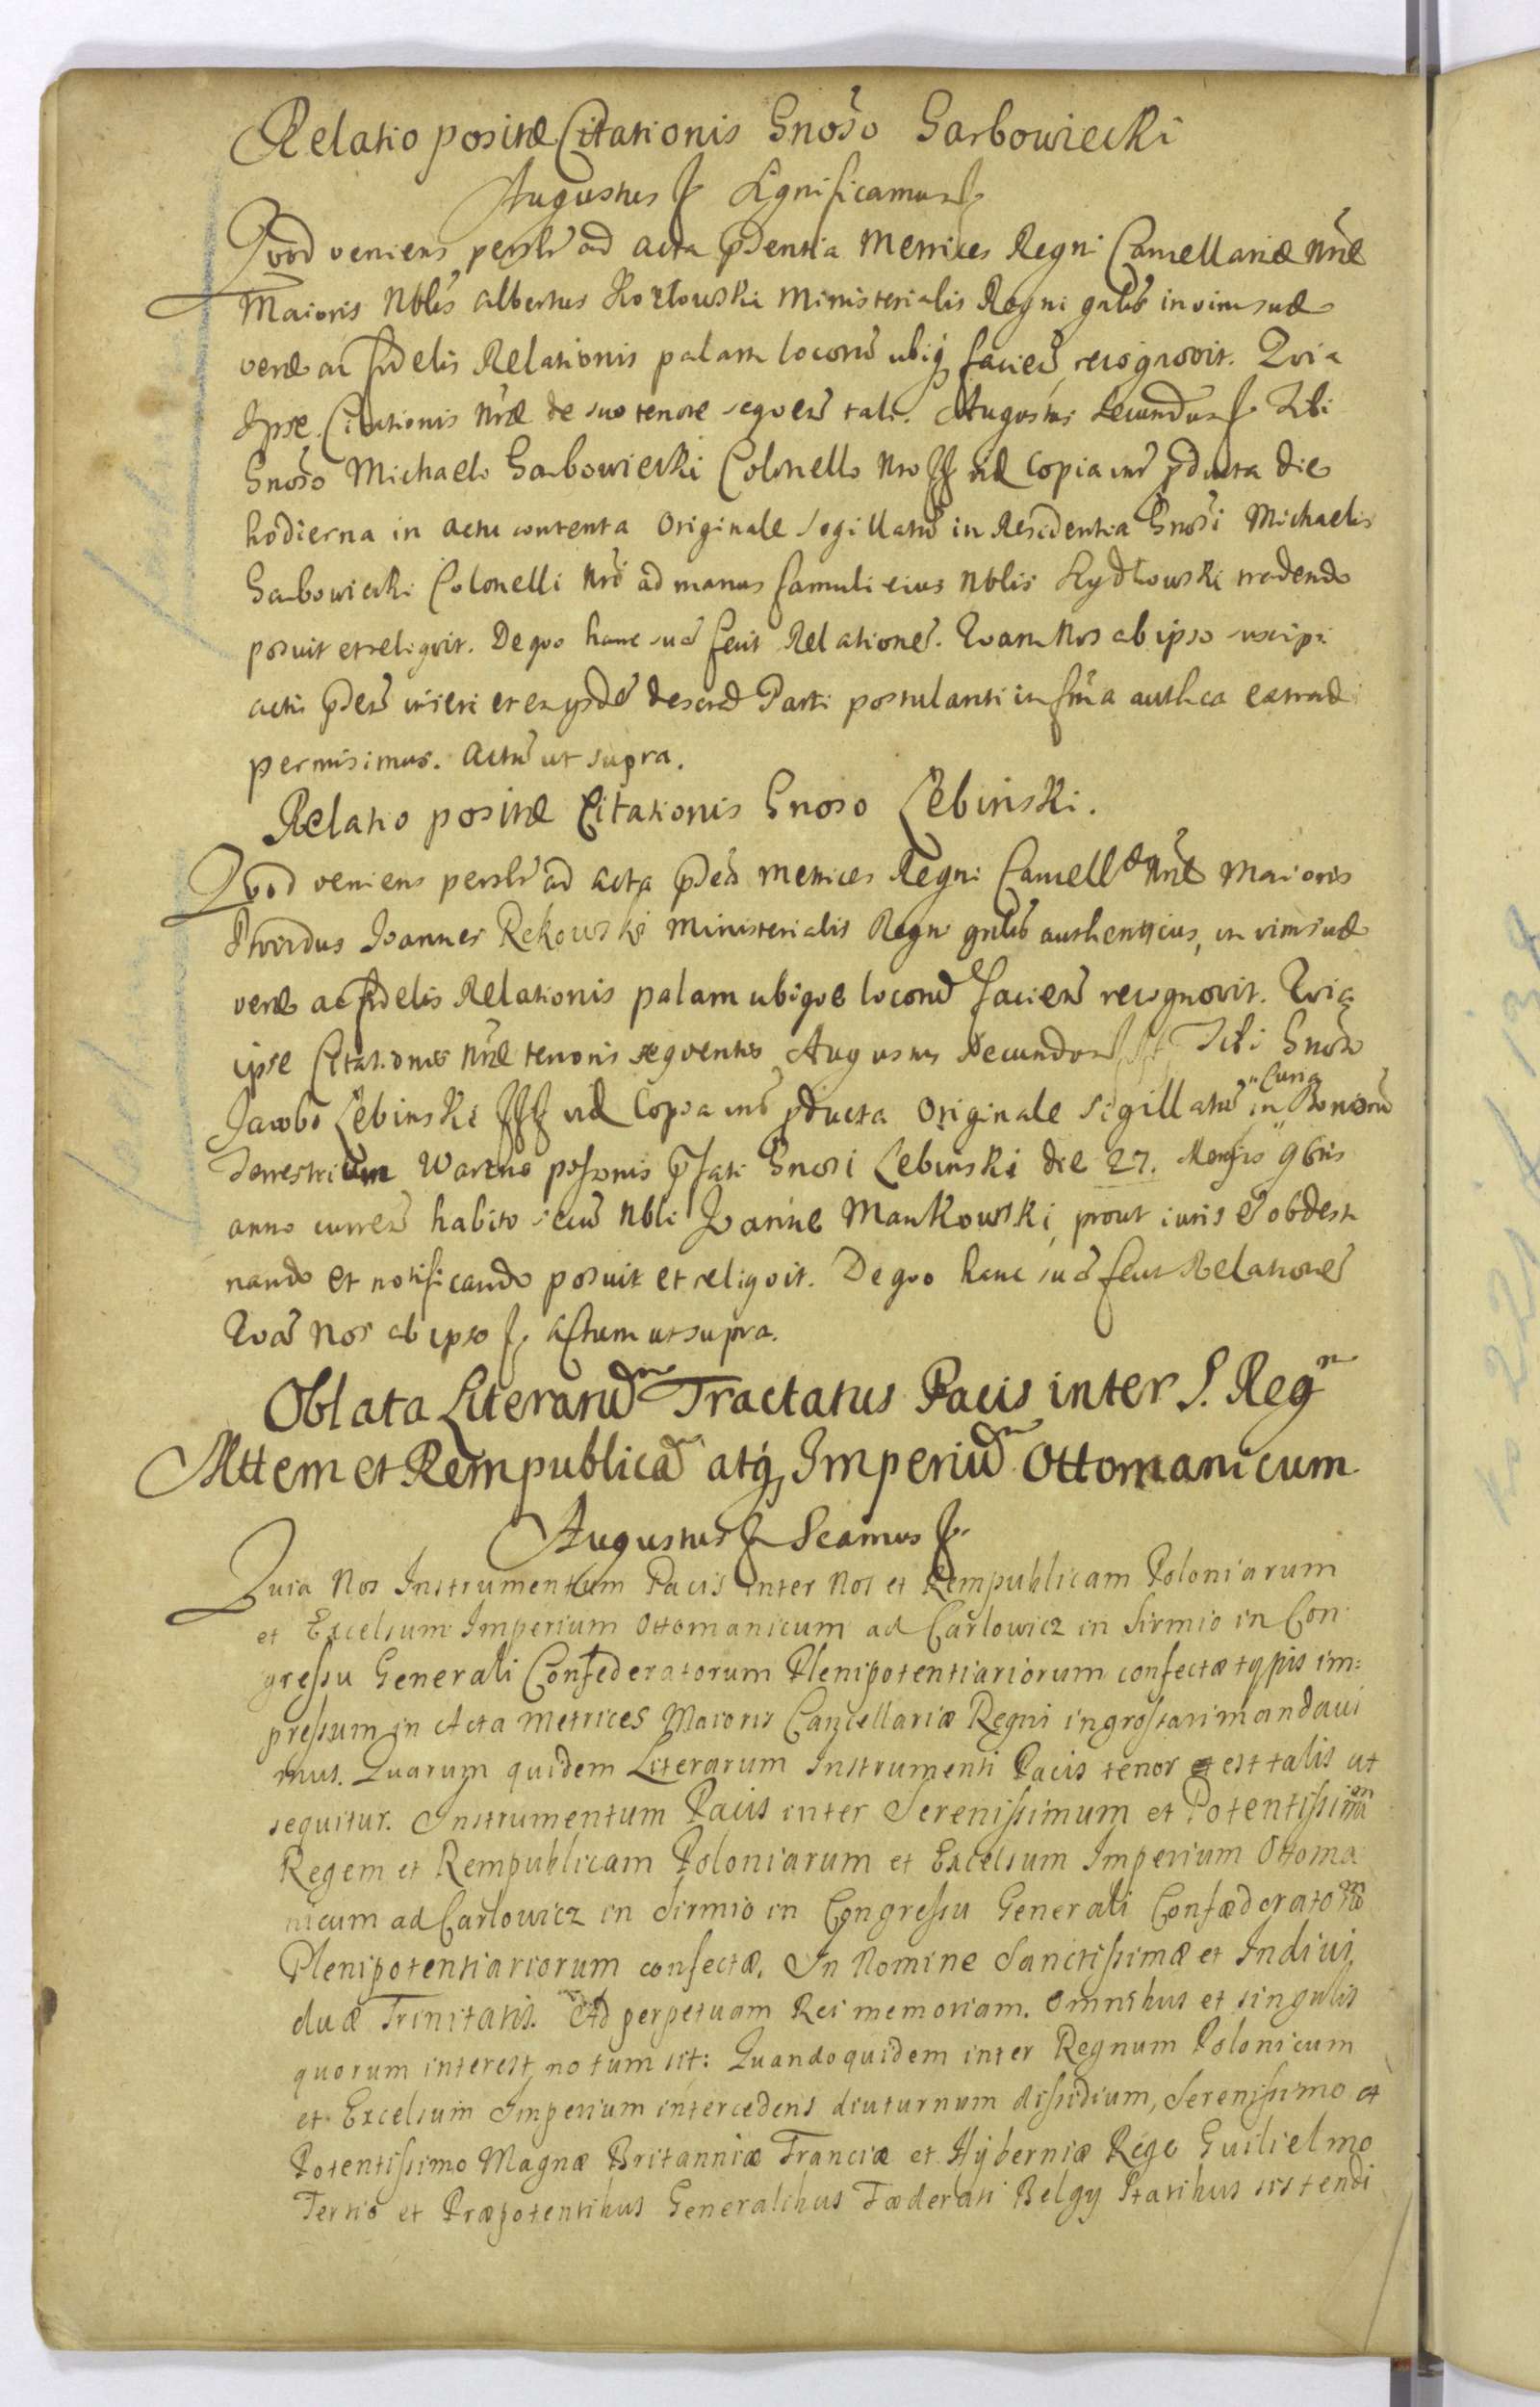 Relatio positæ Citationis Gnoso Garbowiecki
Augustus Significamus
Quod veniens persłr ad acta pdentia Metrices Regni Cancellariæ Nræ
Maioris Nblis Albertus Kozłowski Ministerialis Regni gnlis in vim suæ
veræ ac fidelis Relationis palam locorũ ubiq faciẽ recognovit. Quia
Ipse Citationis Nræ de suo tenore sequeñ tali. Augustus Secundus Tibi
Gnoso Michaeli Garbowiecki Colonello Nro copia pducta die
hodierna in actu contenta Originale Sigillatũ in Residentia Gnosi Michaelis
Garbowiecki Colonelli Nri ad manus famuli eius Nblis Rydłowski tradendo
posuit et reliquit. De quo hanc suã fecit Relationẽ. Quam Nos ab ipso suscipi
actis pdeñ inseri et ex ysdẽ Parti postulanti in fma authca extradi
permisimus. Actũ ut supra.
Relatio positæ Citationis Gnoso Lebinski.
Quod veniens persłr ad acta pdeñ Metrices Regni Cancellæ Nræ Maioris
Providus Joannes Rekowski Ministerialis Regni gnlis authenticus, in vim suæ
veræ ac fidelis Relationis palam ubique locorũ facieñ recognovit. Quia
ipse Citationis Nræ tenoris sequentis Augustus Secundus Tibi Gnoso
Jacobo Lebinski copia pducta Originale Sigillatũ in Curia Bonorũ
Terrestrium Warzno pssonis pfati Gnosi Lebinski die 27. Mensis 9bris
anno curreñ habito secũ Nbli Joanne Mankowski, prout iuris ẽ obdesti
nando et notificando posuit et reliquit. De quo hanc suã fecit Relationẽ
Quã Nos ab ipso Actum ut supra.
Oblata Literarũ Tractatus Pacis inter S. Regm
Mttem et Rempublicã atq Imperiũ Ottomanicum
Augustus Scamus
Quia Nos Instrumentum Pacis inter Nos et Rempublicam Poloniarum
et Excelsum Imperium Ottomanicum ad Carlowicz in Sirmio in Con
gressu Generali Confederatorum Plenipotentiariorum confectæ typis im=
pressum in Acta Metrices Maioris Cancellariæ Regni ingrossari mandaui
mus. Quarum quidem Literarum Instrumenti Pacis tenor est talis ut
sequitur. Instrumentum Pacis inter Serenissimum et Potentissimũ
Regem et Rempublicam Poloniarum et Excelsum Imperium Ottoma
nicum ad Carlowicz in Sirmio in Congressu Generali Confœderatorũ
Plenipotentiariorum confectæ. In Nomine Sanctissimæ et Indiui
duæ Trinitatis. Ad perpetuam Rei memoriam. Omnibus et singulis
quorum interest, notum sit: Quandoquidem inter Regnum Polonicum
et Excelsum Imperium intercedens diuturnum dissidium, Serenissimo et
Potentissimo Magnæ Britanniæ Franciæ et Hyberniæ Rege Guilielmo
Tertio et Præpotentibus Generalibus Fœderati Belgy Statibus sistendi